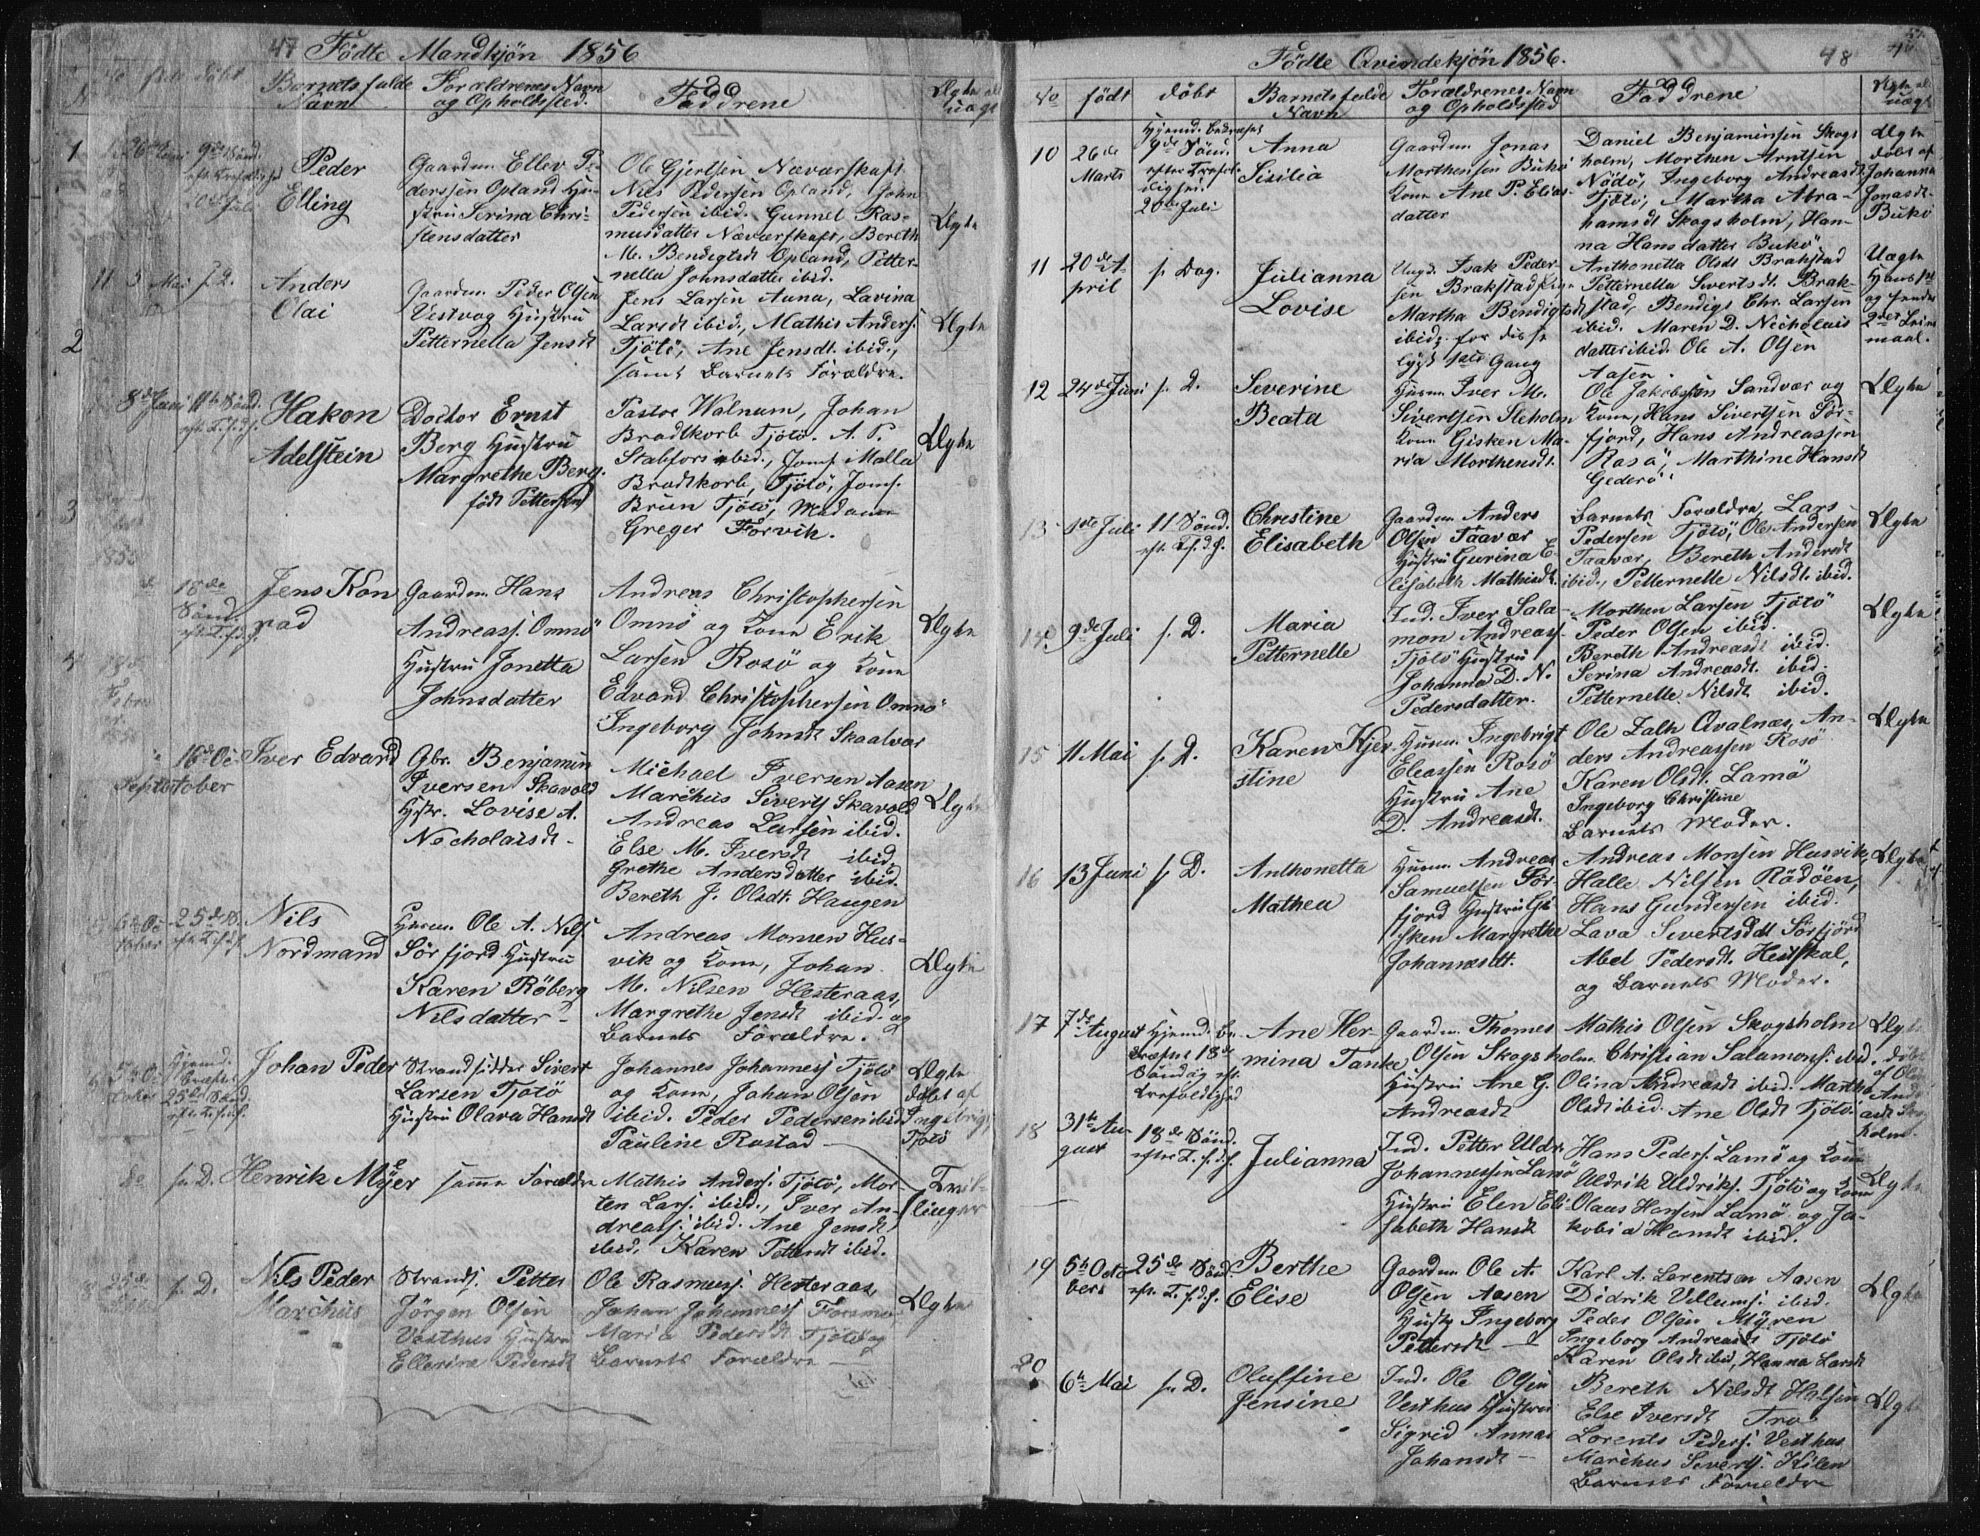 47 Födte Mandkjön 1856
Födt Döbt
Barnets fulde
Navn
Forældrenes Navn
og Opholdsted.
Faddrene
Ægte el
uægt
9de Sönd.
20de Juli
Peder
Elling
Gaardm. Ellev Pe-
dersen Opland Hu-
stru Serina Chri-
stensdatter
Ole Gjertsen Næværskaft
Nils Pedersen Opland, John
Pedersen ibid. Gunnel Ras-
musdatter Næværskaft, Bereth
M. Bendigtsdt Opland, Petter-
nella Johnsdatter ibid.
Ægte
5 Mai s. D.
Anders
Olai
Gaardm. Peder Olsen
Vestvog Hustru
Petternella Jensdt
Jens Larsen Auna, Lavina
Larsdt ibid., Mathis Anders.
Tjötö, Ane Jensdt. ibid.,
samt Barnets Forældre.
Ægte
8de Juni 11te Sönd.
eft. T.f.d.f.
Hakon
Adelstein
Doctor Ernst
Berg Hustru
Margrethe Berg.
födt Pettersen
Pastor Walnum, Johan
Brodtkorb Tjötö. A. P.
Stabfors ibid., Jomf. Malla
Brodtkorb, Tjötö, Jomf.
Brun Tjötö, Madame
Greger Forvik.
Ægte
18de
Sönd.
eft. T.f.d.f.
Jens Kon
rad
Gaardm. Hans
Andreass. Omnö
Hustru Jonetta
Johnsdatter
Andreas Christophersen
Omnö og Kone Erik
Larsen Rosö og Kone
Edvard Christophersen Omnö
Ingeborg Johnsdt Skaalvær
Ægte
September
16de Oc
tober
Iver Edvard
Gbr. Benjamin
Iversen Skavold
Hstr. Lovise A.
Nicholaisdt.
Michael Iversen Aasen
Marchus Sivertsen Skavold
Andreas Larsen ibid.
Else M. Iversdt ibid
Grethe Andersdatter ibid.
Bereth J. Olsdt. Haugen
Ægte
5te Oc
tober
25de S.
eft. T.f.d.f.
Nils
Nordmand
Husm. Ole A. Nils.
Sörfjord Hustru
Karen Röberg
Nilsdatter
Andreas Monsen Hus-
vik og Kone, Johan
M. Nilsen Hesteraas,
Margrethe Jensdt ibid. og
Barnets Forældre.
Ægte
5te Oc
tober
Hjemd.
Bræfst
25de Sönd.
eft. T.f.d.f.
Johan Peder
Strandsidder Sivert
Larsen Tjötö
Hustru Olava Hansdt
Johannes Johanness Tjötö
og Kone, Johan Olsen
ibid. Peder Pedersen ibid
Pauline Rostad
Ægte
döbt af
Ingebrigt
Tjötö
do s. D. Henrik Mejer samme Forældre
Mathis Anders. Tjötö, Mor-
ten Lars. ibid., Iver An-
dreass. ibid. Ane Jensdt
ibid. Karen Pettersdt ibid.
Tvil-
linger
s. D.
Nils Peder
Marchus
Strands. Petter
Jörgen Olsen
Vesthus Hustru
Ellesine Pedersdt
Ole Rasmuss. Hesteraas,
Johan Johanness Forsmo
Maria Pedersdt Tjötö og
Barnets Forældre
Ægte
Födte Qvindekjön 1856. 48
No
födt
döbt
Barnets fulde
Navn
Forældrenes Navn
og Opholdsted
Faddrene
Ægte el
uægt
10
26de
Marts
Hjemd. bekræftet
9de Sönd.
efter Trefol-
dig fri.
20de Juli
Anna
Sisilia
Gaardm. Jonas
Morthensen Bukö
Kone Ane P. Elias-
datter
Daniel Benjaminsen Skogs
holm, Morthen Arntsen
Nödö, Ingeborg Andreasdt
Tjötö, Martha Abra-
hamsdt Skogsholm, Han-
na Hansdatter Bukö
Ægte
döbt af
Johanna
Jonasdt.
Bukö
11
20de A
pril
s. Dag.
Julianna
Lovise
Ungk. Isak Peder-
sen Brakstad
Martha Bendigtsdt
ibid. for disse
lyst 1ste Gang
Anthonetta Olsdt Brakstad
Petternella Sivertsdt. Brak-
stad, Bendigt Chr. Larsen
ibid. Maren D. Nicholais
datter ibid. Ole A. Olsen
Aasen.
Uægte
Hans 1st
og hendes
2det Leier
maal.
12
24de Juni
s. D.
Severine
Beata
Husm. Iver M.
Sivertsen Sleholm
Kone Gisken Ma-
ria Morthensdt.
Ole Jakobsen Sandvær og
Kone, Hans Sivertsen Sör-
fjord, Hans Andreassen
Rosö, Marthine Hansdt
Gederö.
Ægte
13
1ste Juli
11 Sönd.
eft. T.f.d.f.
Christine
Elisabeth
Gaardm. Anders
Olsen Taavær
Hustru Gurina E-
lisabeth Mathisdt.
Barnets Forældre, Lars
Pedersen Tjötö, Ole Andersen
Taavær, Bereth Andersdt
ibid., Petternelle Nilsdt. ibid.
Ægte
14
9de Juli
s. D.
Maria
Petternelle
Ind. Iver Sala-
mon Andreass.
Tjötö Hustru
Johanna D. N.
Pedersdatter.
Morthen Larsen Tjötö
Peder Olsen ibid.
Bereth Andreasdt ibid.
Serina Andreasdt. ibid.
Petternelle Nilsdt ibid.
Ægte
15
11 Mai
s. D.
Karen Kjer
stine
Husm. Ingebrigt
Eleassen Rosö
Hustru Ane
D. Andreasdt.
Ole Zalh Qvalnæs, An-
ders Andreassen Rosö
Karen Olsdt. Lamö
Ingeborg Christine
Barnets Moder.
Ægte
16
13 Juni
s. D.
Anthonetta
Mathea
Husm. Andreas
Samuelsen Sör-
fjord Hustru Gi-
sken Margrethe
Johannesdt.
Andreas Monsen Husvik,
Halle Nilsen Rödöen,
Hans Gundersen ibid.
Lava Sivertsdt Sörfjord
Abel Pedersdt. Hestskal,
og Barnets Moder.
Ægte
17
7de
August
Hjemd. be-
kræftet 18de
Söndag eft.
Trefoldighed
Ane Her-
mina Tanke
Gaardm. Thomes
Olsen Skogsholm
Hustru Ane G.
Andreasdt
Mathis Olsen Skogsholm
Christian Salamons. ibid.
Olina Andreasdt ibid. Martha
Olsdt ibid. Ane Olsdt Tjötö
Ægte
döbt
af Olina
Andre
asdt Skogs
holm
18
31te Au-
gust
18de Sönd.
efter T.f.d.f.
Julianna
Ind. Petter Uldr.
Johannessen Lamö
Hustru Elen Eli-
sabeth Hansdt
Hans Peders. Lamö og Kone
Uldrik Uldriks. Tjötö og Kone
Olaus Hansen Lamö og Ja-
kobia Hansdt ibid.
Ægte
19
5te Octo
ber
25de Sönd.
eft. T.f.d.f.
Berthe
Elise
Gaardm. Ole A.
Olsen Aasen
Hustr Ingeborg
Pedersdt
Karl A. Lorentsen Aasen
Didrik Villums. ibid.
Peder Olsen Myren
Ingeborg Andreasdt Tjötö
Karen Olsdt ibid, Hanna Larsdt
Ægte
20
6te Mai
s. D.
Oluffine
Jensine
Ind. Ole Olsen
Vesthus Hustru
Sigrid Annas
Johansdt
Bereth Nilsdt Halsen
Else Iversdt Tro
Lorents Peders. Vesthus
Marchus Siverts. Kilen
Barnets Forældre
Ægte